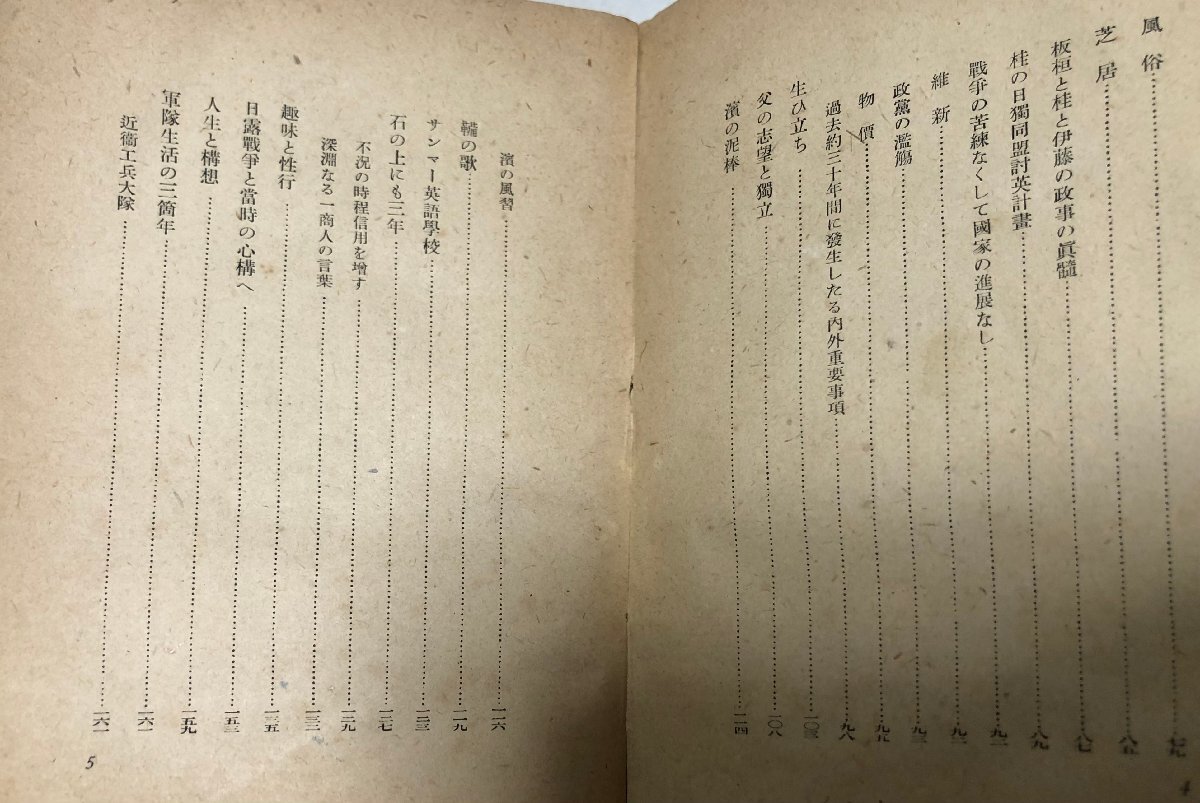 風俗……七九
芝居……八五
板垣と桂と伊藤の政事の眞髓……八七
桂の日獨同盟討英計畫……八九
戰爭の苦練なくして國家の進展なし……九一
維新……九二
政黨の濫觴……九三
物價……九五
過去約三十年間に發生したる內外重要事項……九八
生ひ立ち……一〇三
父の志望と獨立……一〇八
濱の泥棒……一一四
4
濱の風習……一一六
の歌……一一九
サンマー英語學校……一二三
石の上にも三年……一二七
不況の時程信用を增す……一二九
深淵なる一商人の言葉……一三三
趣味と性行……一三五
日露戰爭と當時の心構へ……一五三
人生と構想……一五九
軍隊生活の三箇年……一六一
近衞工兵大隊……一六一
5